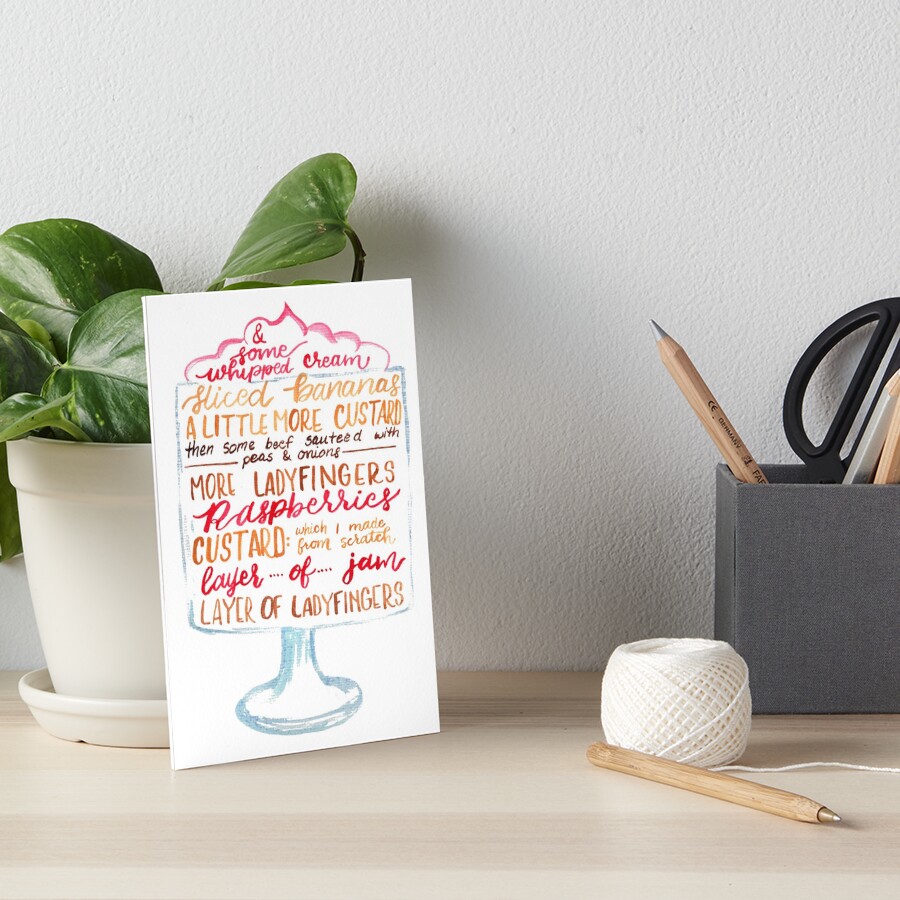 &
some
whipped cream
sliced bananas
A LITTLE MORE CUSTARD
then some beef sauteed with
peas & onions
MORE LADYFINGERS
Raspberries
CUSTARD: which I made
from scratch
layer .... of .... jam
LAYER OF LADYFINGERS
CE
GERMANY